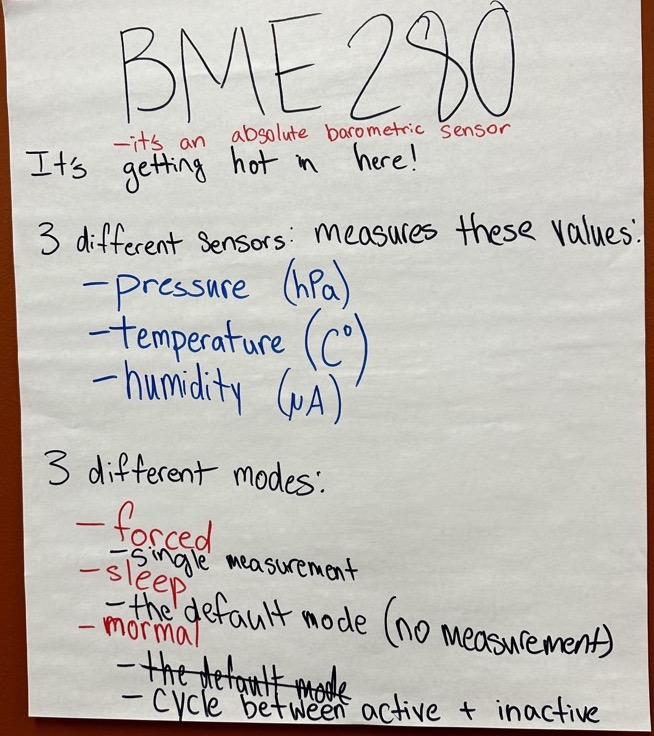 BME 280
-it's an absolute barometric sensor
It's getting hot in here!
3 different sensors: measures these values:
-pressure (hPa)
-temperature (C°)
-humidity (µA)
3 different modes:
-forced
-single measurement
-sleep
-the default mode (no measurement)
-mormal
-the default mode
-cycle between active + inactive